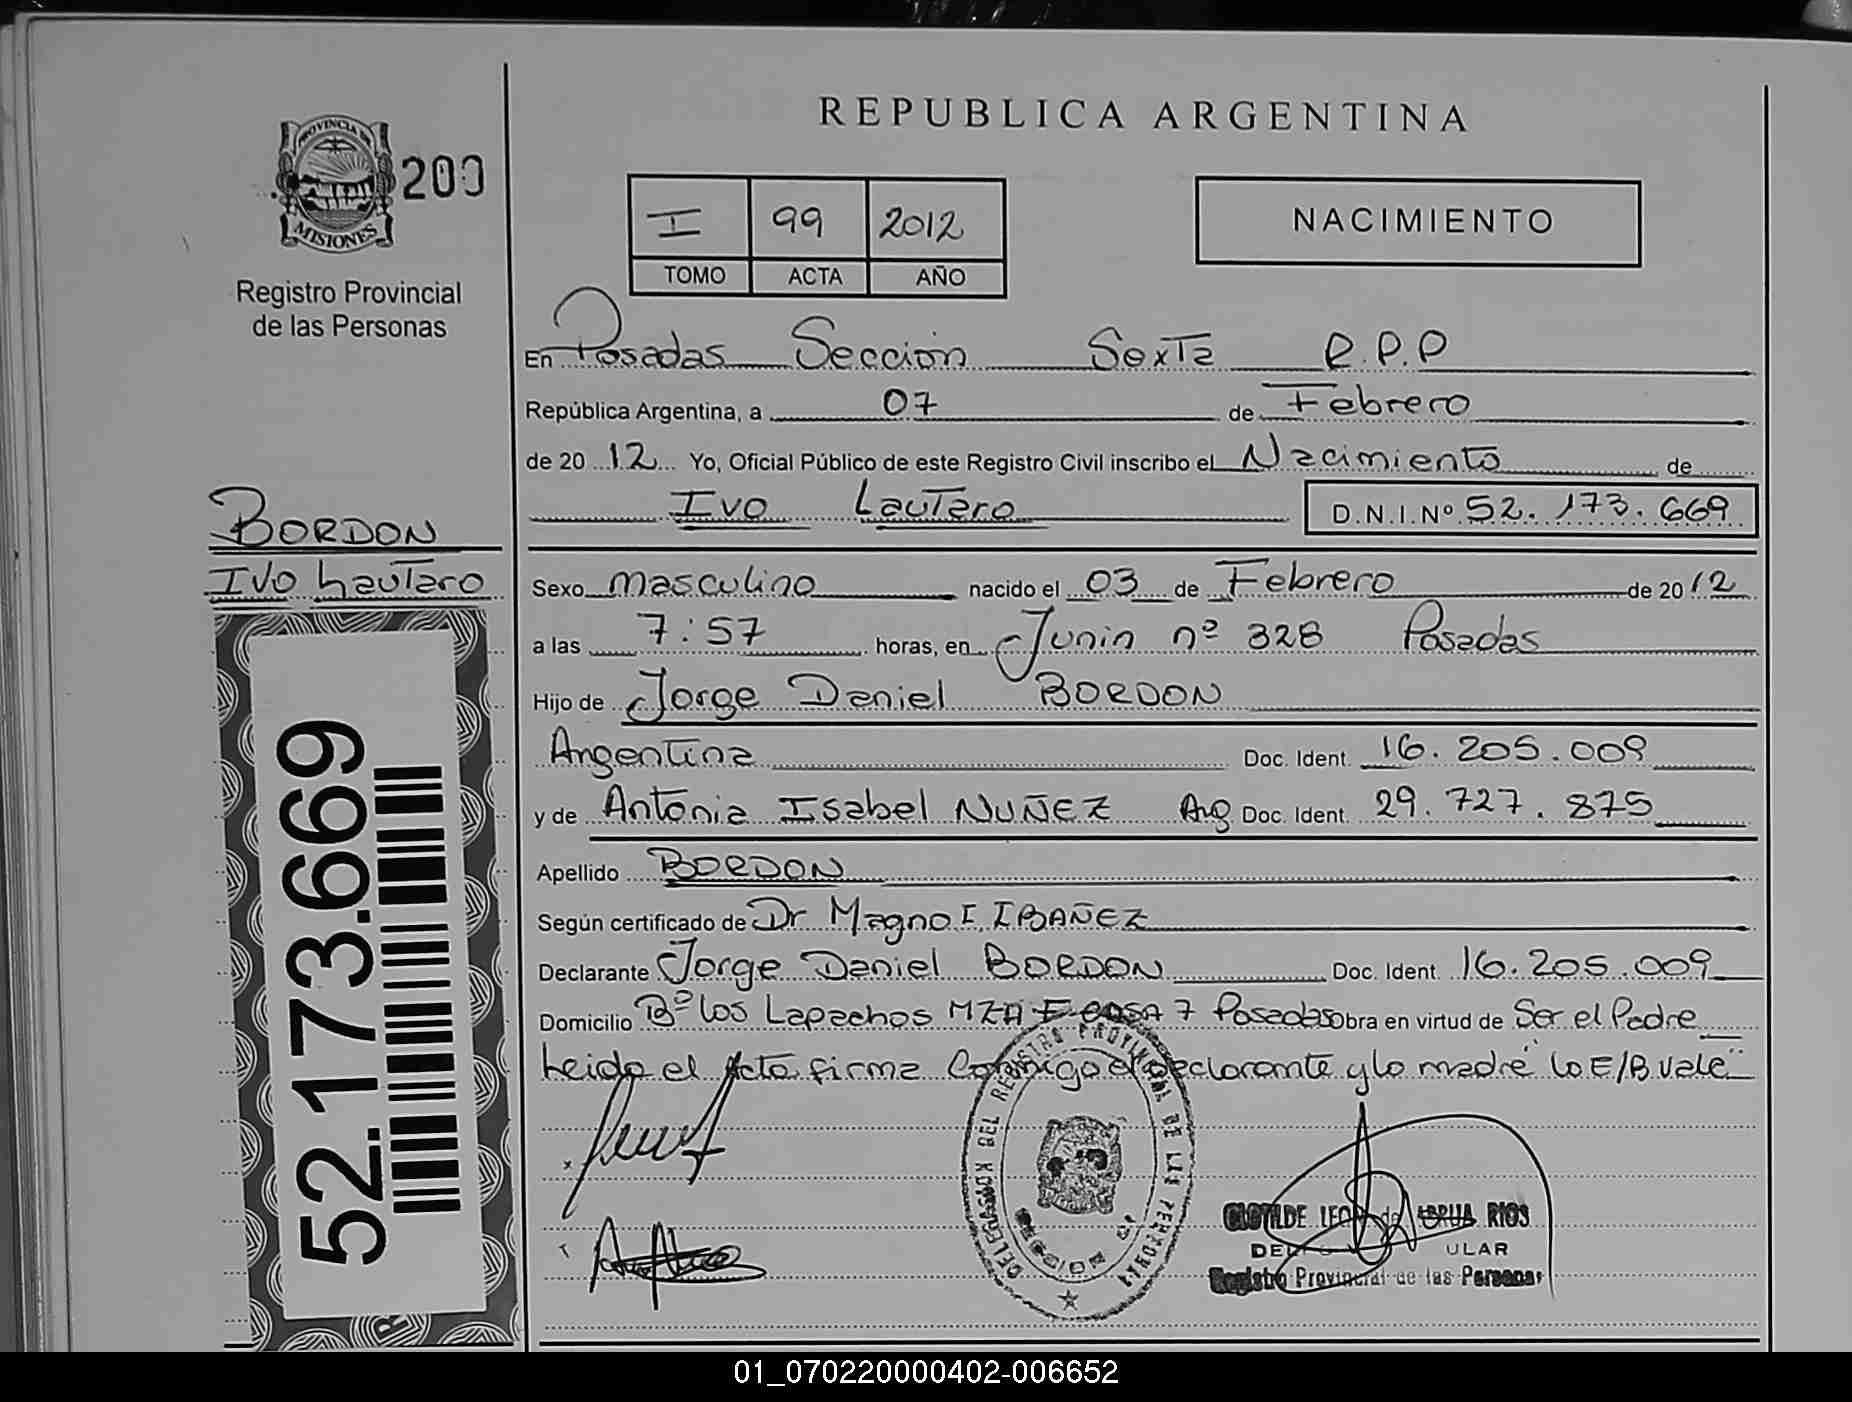 REPUBLICA ARGENTINA
PROVINCIA DE
MISIONES
200
Registro Provincial
de las Personas
I 99 2012
TOMO ACTA AÑO
NACIMIENTO
En Posadas Sección Sexta R.P.P
República Argentina, a 07 de Febrero
de 20 12 Yo, Oficial Público de este Registro Civil inscribo el Nacimiento de
Ivo Lautaro D.N.I.Nº 52.173.669
BORDON
Ivo Lautaro
52.173.669
Sexo masculino nacido el 03 de Febrero de 2012
a las 7:57 horas, en Junin nº 328 Posadas
Hijo de Jorge Daniel BORDON
Argentina Doc. Ident. 16.205.009
y de Antonia Isabel NUÑEZ Arg Doc. Ident. 29.727.875
Apellido BORDON
Según certificado de Dr Magno E, IBAÑEZ
Declarante Jorge Daniel BORDON Doc. Ident. 16.205.009
Domicilio Bº los Lapachos MZA E CASA 7 Posadas Obra en virtud de Ser el Padre
Leido el Acta firma Conmigo el declarante y la madre "lo E/B Vale"
DELEGACION DEL REGISTRO PROVINCIAL DE LAS PERSONAS
SECCION 6ª
CLOTILDE RIOS
Registro Provincial de las Personas
01_070220000402-006652